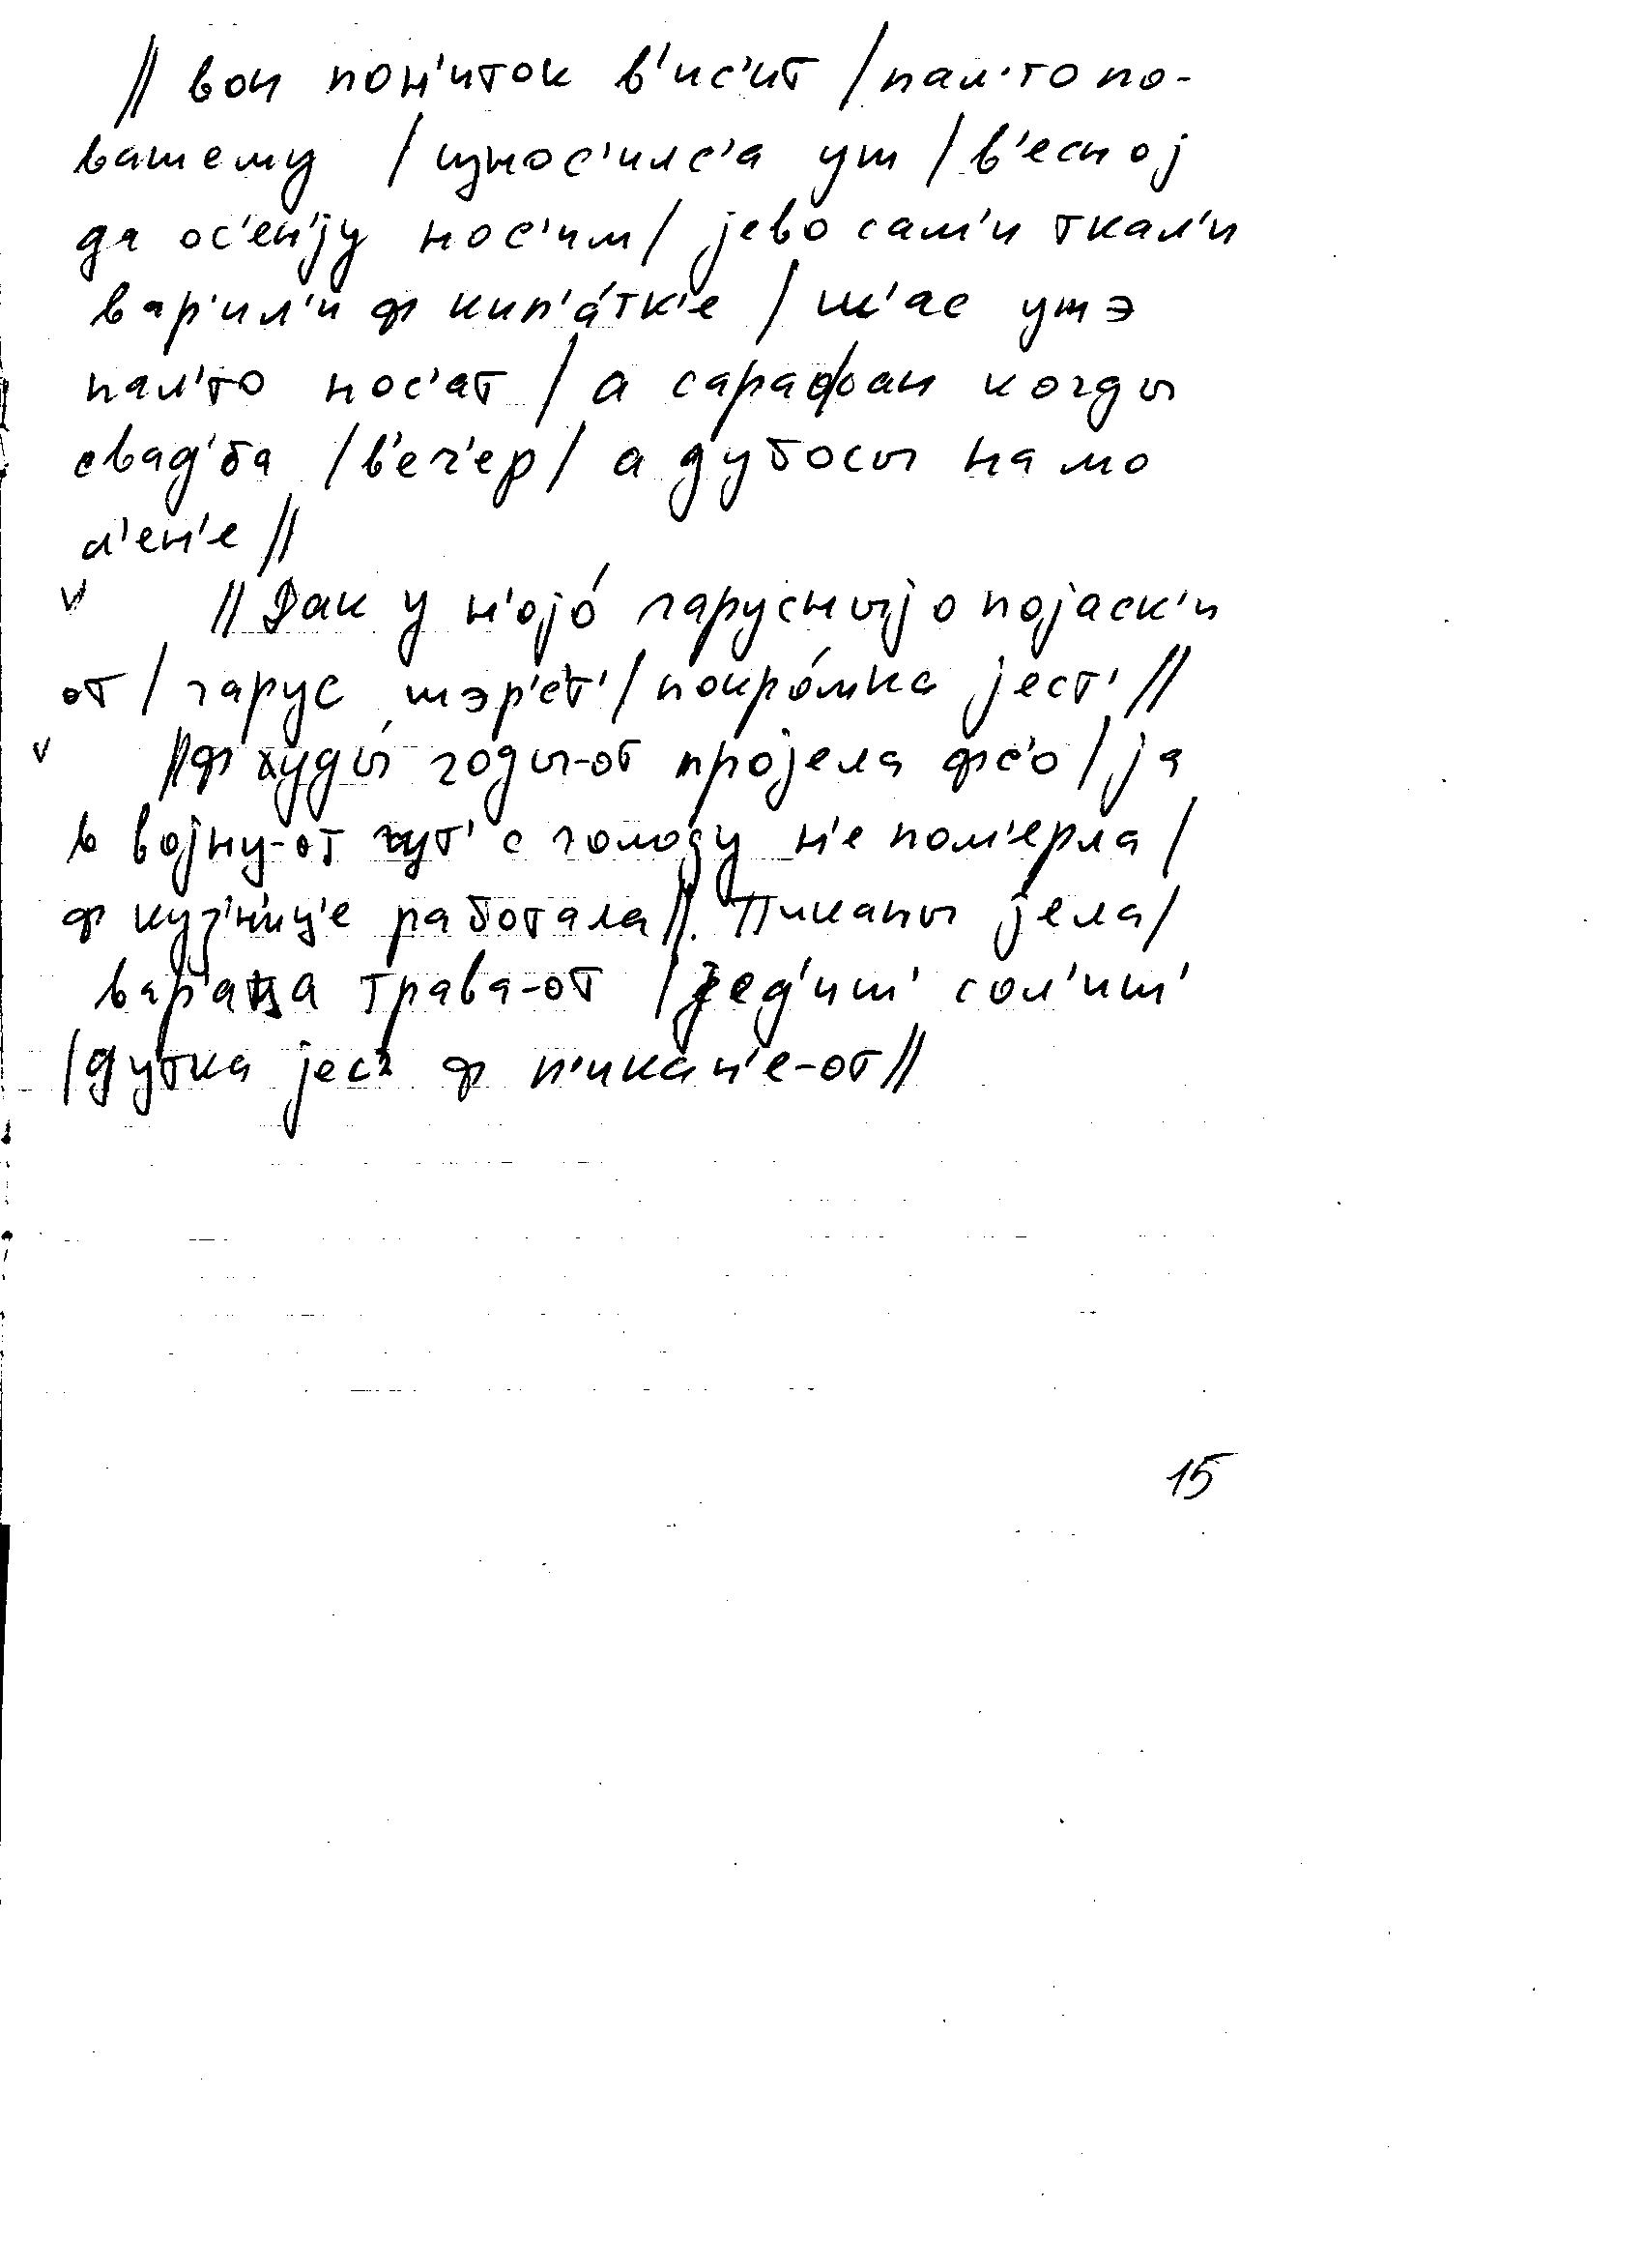 // вон пон'иток в'ис'ит / пал'то по-
вашему / износ'илс'а уш / в'есној
да ос'ен'јy нос'им / јево сам'и ткал'и
вар'ил'и ф кип'а́тк'е / ш'ас ушэ
пал'то нос'ат / а сарафан когды
свад'ба / в'еч'ер / а дубосы на мо
л'ен'е //
v // Дак у н'ојо́ гарусныјо појаск'и
от / гарус шэр'ст' / покро́мка јест' //
v // Ф худы́ годы-от пројела фс'о / ја
в војну-от чут' с голоду н'е пом'ерла /
ф куз'н'иц'е работала //. Пиканы јела /
вар'аца трава-от / јед'иш' сол'иш'
/ дутка јес' ф п'икан'е-от //
15